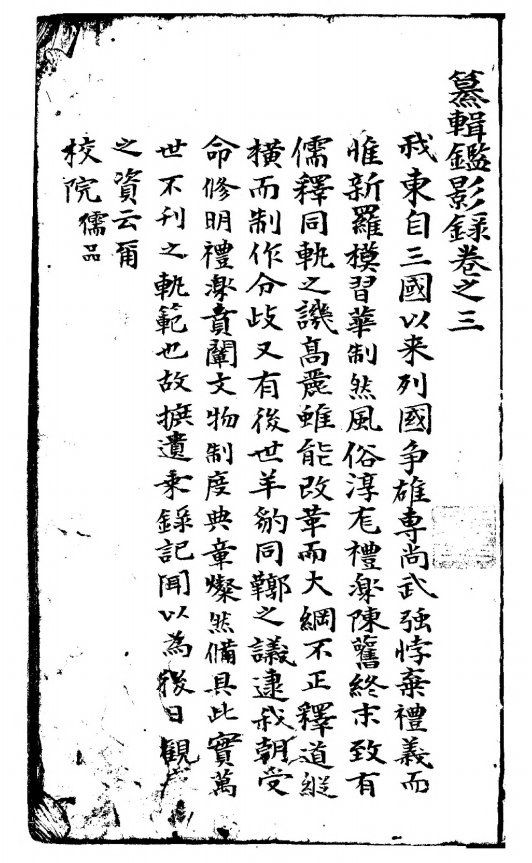 纂輯鑑影録卷之三
我東自三國以来列國争雄専尚武强悖棄禮義而
惟新羅模習華制然風俗淳厖禮樂陳舊終末致有
儒釋同軌之譏髙麗雖能改革而大綱不正釋道縱
橫而制作分歧又有後世羊豹同鞹之議逮我朝受
命修明禮樂賁闡文物制度典章燦然備具此實萬
世不刊之軌範也故摭遺乗錄記聞以為後日觀
之資云爾
校院儒品